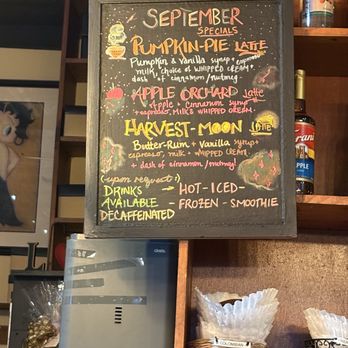 SEPTEMBER
SPECIALS
PUMPKIN-PIE LATTE
Pumpkin & vanilla syrup + espresso
milk, choice of WHIPPED CREAM +
dash of cinnamon/nutmeg
APPLE ORCHARD Latte
Apple + Cinnamon syrup
+ espresso, MILK & WHIPPED CREAM
HARVEST-MOON latte
Butter-Rum + Vanilla syrup +
espresso, milk + WHIPPED CREAM
+ dash of cinnamon/nutmeg!
(upon request :)
DRINKS → HOT - ICED -
AVAILABLE - FROZEN - SMOOTHIE
DECAFFEINATED
TORANI
COLOMBIAN